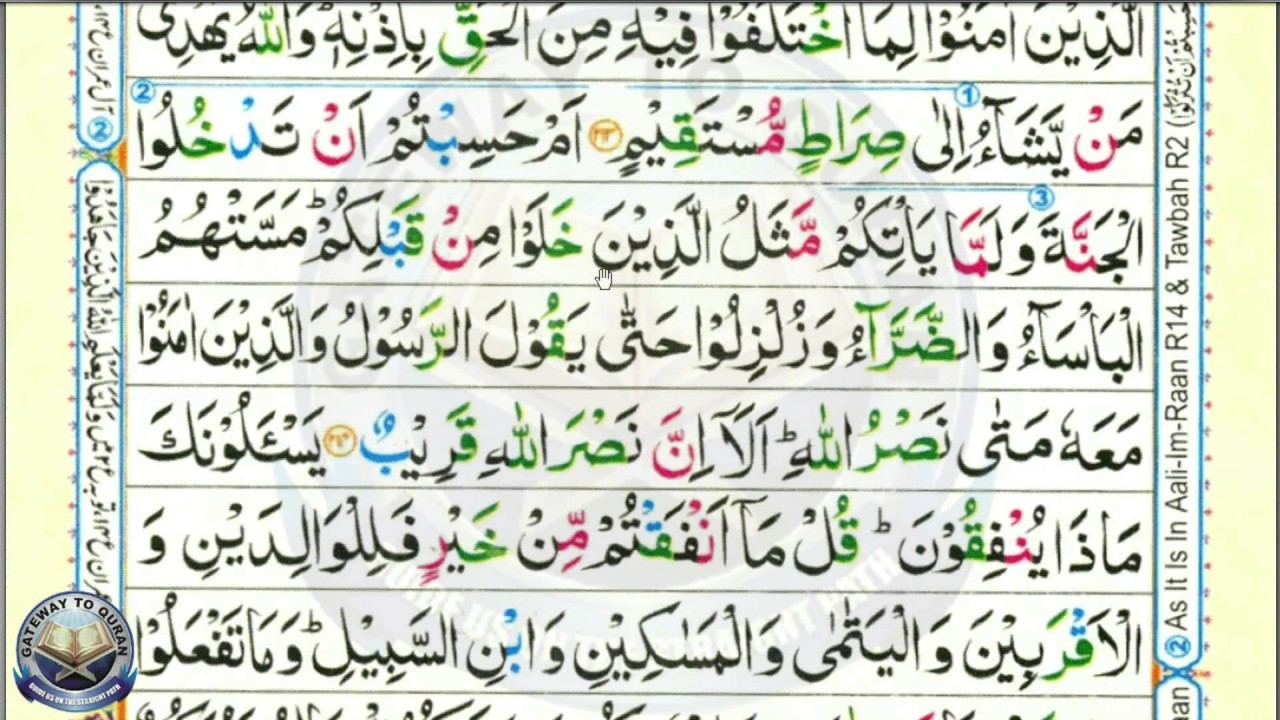 الَّذِيْنَ اٰمَنُوْا لِمَا اخْتَلَفُوْا فِيْهِ مِنَ الْحَقِّ بِاِذْنِهٖ ؕ وَاللّٰهُ يَهْدِىْ
مَنْ يَّشَآءُ اِلٰى صِرَاطٍ مُّسْتَقِيْمٍ ﴿۲۱۳﴾ اَمْ حَسِبْتُمْ اَنْ تَدْخُلُوا
الْجَنَّةَ وَ لَمَّا يَاْتِكُمْ مَّثَلُ الَّذِيْنَ خَلَوْا مِنْ قَبْلِكُمْ ؕ مَسَّتْهُمُ
الْبَاْسَآءُ وَ الضَّرَّآءُ وَ زُلْزِلُوْا حَتّٰى يَقُوْلَ الرَّسُوْلُ وَ الَّذِيْنَ اٰمَنُوْا
مَعَهٗ مَتٰى نَصْرُ اللّٰهِ ؕ اَلَاۤ اِنَّ نَصْرَ اللّٰهِ قَرِيْبٌ ﴿۲۱۴﴾ يَسْـَٔلُوْنَكَ
مَاذَا يُنْفِقُوْنَ ؕ قُلْ مَاۤ اَنْفَقْتُمْ مِّنْ خَيْرٍ فَلِلْوَالِدَيْنِ وَ
الْاَقْرَبِيْنَ وَ الْيَتٰمٰى وَ الْمَسٰكِيْنِ وَ ابْنِ السَّبِيْلِ ؕ وَ مَا تَفْعَلُوْا
② As It Is In Aali-Im-Raan R14 & Tawbah R2
GATEWAY TO QURAN
GUIDE US ON THE STRAIGHT PATH